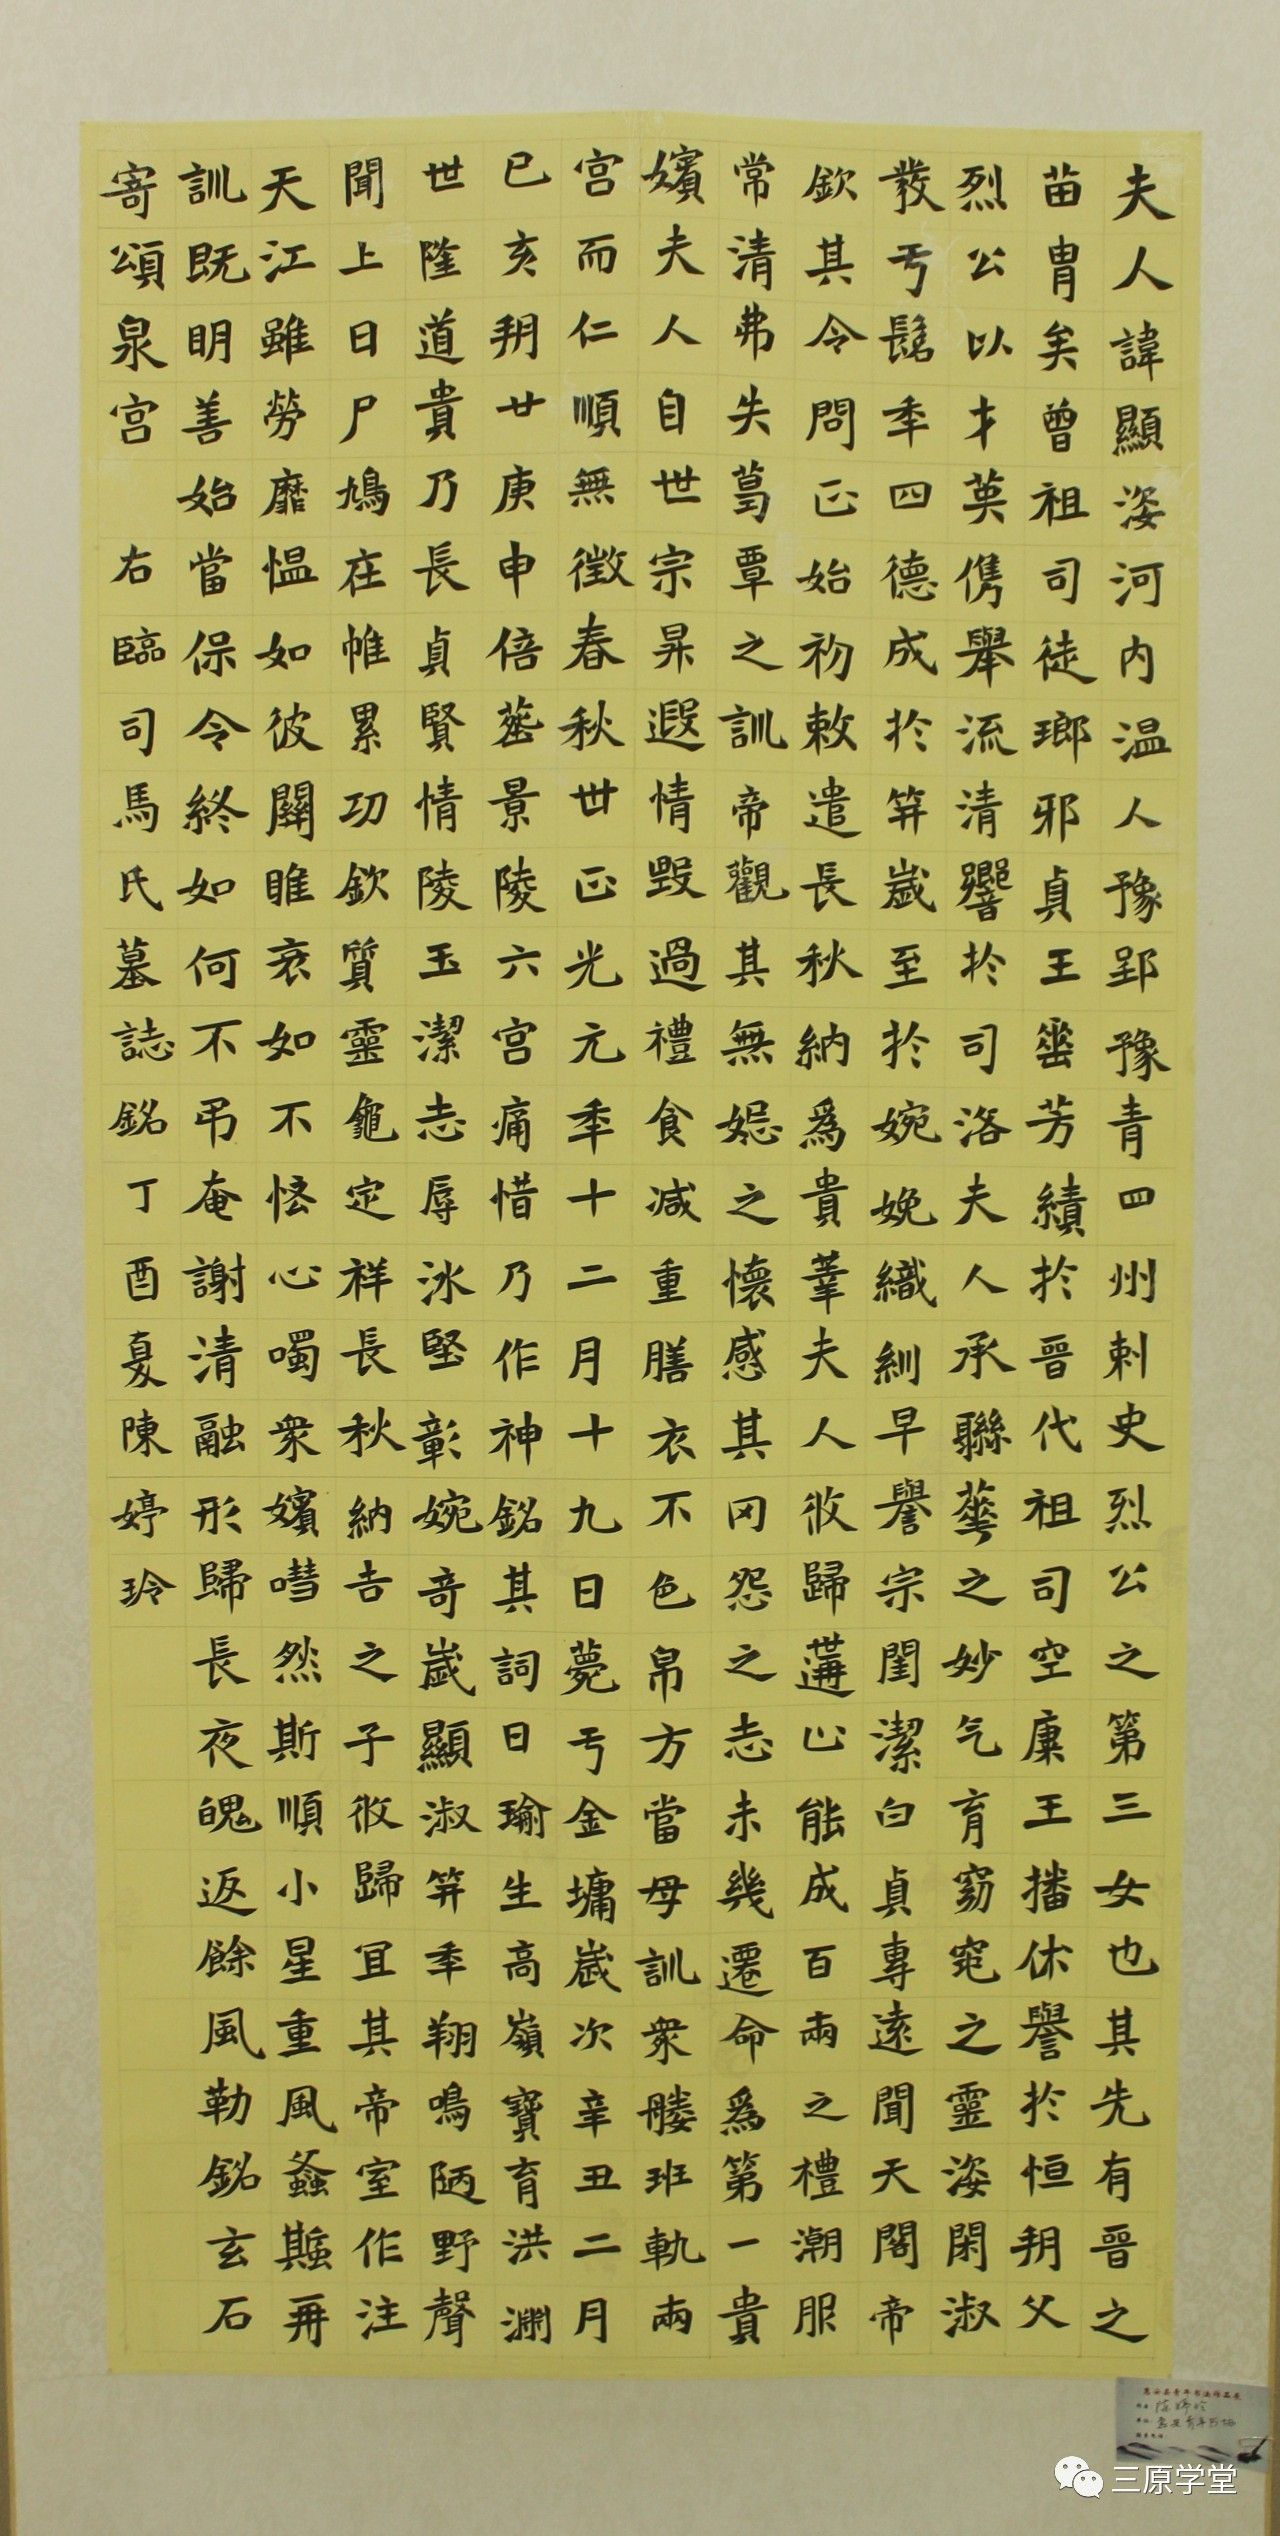 夫人諱顯姿河内温人豫郢豫青四州刺史烈公之第三女也其先有晉之
苗胄矣曾祖司徒瑯邪貞王垂芳績於晉代祖司空康王播休譽於恒朔父
烈公以才英儁舉流清響於司洛夫人承聯華之妙气育窈窕之靈姿閑淑
發于髫年四德成於笄歲至於婉娩織紃早譽宗閨潔白貞專遠聞天閣帝
欽其令問正始初敕遣長秋納為貴華夫人攸歸遘止能成百兩之禮潮服
常清弗失葛覃之訓帝觀其無妬之懷感其罔怨之志未幾遷命為第一貴
嬪夫人自世宗昇遐情毀過禮食減重膳衣不色帛方當母訓眾媵班軌兩
宮而仁順無徵春秋卅正光元年十二月十九日薨于金墉歲次辛丑二月
已亥朔廿庚申倍葬景陵六宮痛惜乃作神銘其詞曰瑜生高嶺寶育洪淵
世隆道貴乃長貞賢情陵玉潔志辱冰堅彰婉奇歲顯淑笄年翔鳴陋野聲
聞上日尸鳩在帷累功欽質靈龜定祥長秋納吉之子攸歸宜其帝室作注
天江雖勞靡愠如彼關雎哀如不恡心噣眾嬪嘒然斯順小星重風螽斯再
訓既明善始當保令終如何不弔奄謝清融形歸長夜魄返餘風勒銘玄石
寄頌泉宮 右臨司馬氏墓誌銘丁酉夏陳婷玲
三原学堂